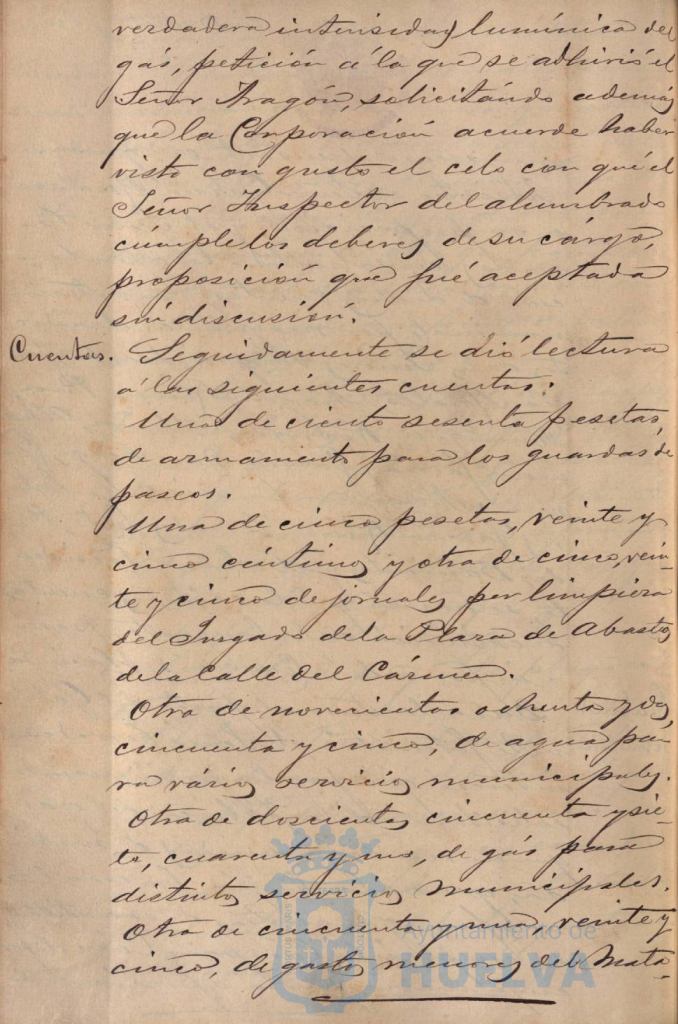 verdadera intensidad lumínica del
gás, petición á la que se adhirió el
Señor Aragón, solicitándo además
que la Corporación acuerde haber
visto con gusto el celo con qué el
Señor Inspector del alumbrado
cúmple los deberes de su cárgo,
proposición que fué aceptada
sin discusión.
Cuentas. Seguidamente se dió lectura
á las siguientes cuentas:
Una de ciento sesenta pesetas,
de armamento para los guardas de
paseos.
Una de cinco pesetas, veinte y
cinco céntimos y otra de cinco, vein-
te y cinco de jornales por limpieza
del Juzgado de la Plaza de Abastos
de la Calle del Cármen.
Otra de novecientas ochenta y dos,
cincuenta y cinco, de agua pa-
ra vários servicios municipales.
Otra de doscientas cincuenta y sie-
te, cuarenta y una, de gás para
distintos servicios municipales.
Otra de cincuenta y una, veinte y
cinco, de gastos menores del Mata-
Ayuntamiento de
HUELVA